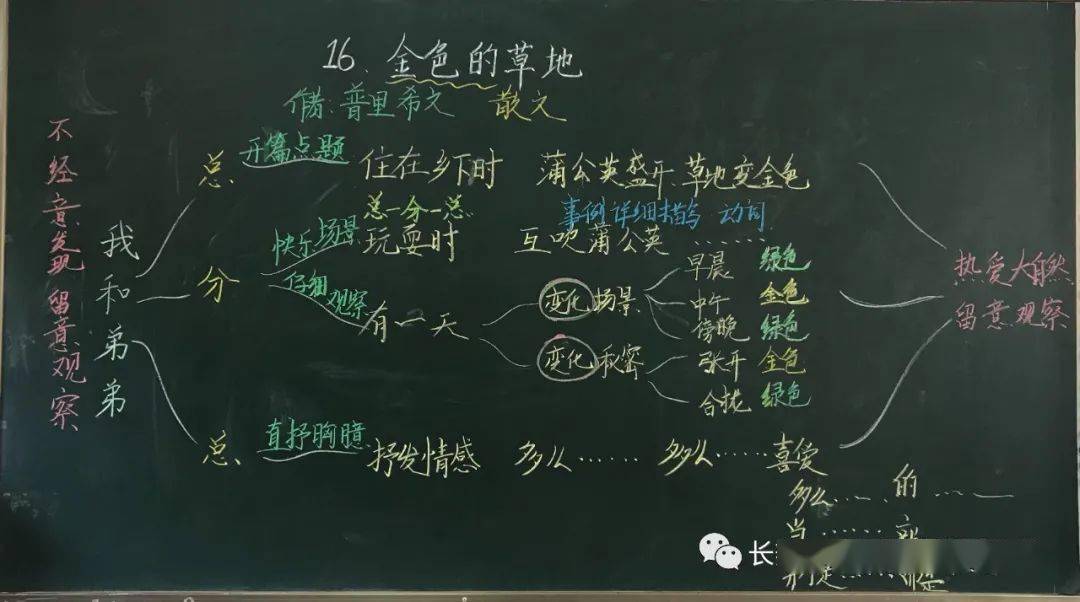 16. 金色的草地
作者:普里希文 散文
不经意发现 留意观察
我和弟弟
总 开篇点题 住在乡下时 蒲公英盛开 草地变金色
总—分—总 事例详细描写 动词
分 快乐场景 玩耍时 互吹蒲公英 ……
仔细观察 有一天
变化 场景
早晨 绿色
中午 金色
傍晚 绿色
变化 秘密
张开 金色
合拢 绿色
总 直抒胸臆 抒发情感 多么…… 多么……喜爱
多么…… 的……
当……
热爱大自然
留意观察
长